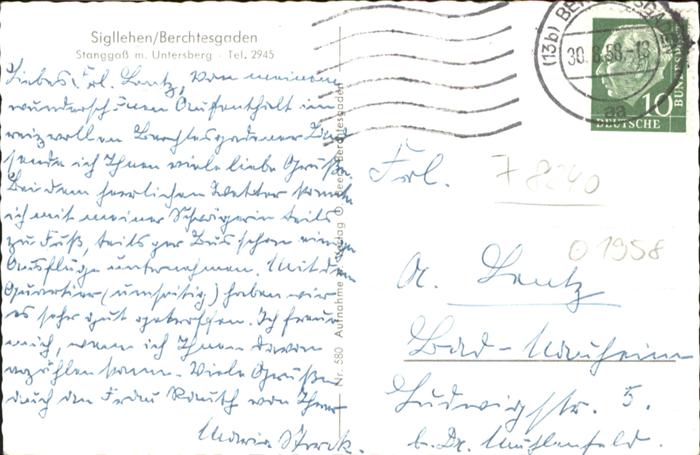 Sigllehen/Berchtesgaden
Stanggaß m. Untersberg · Tel. 2945
Liebes Frl. Lentz, von meinem
wunderschönen Aufenthalt im
reizvollen Berchtesgadener
sende ich Ihnen viele liebe Grüße.
Bei dem herrlichen Wetter konnte
ich mit meiner Schwägerin teils
zu Fuß, teils per Bus schon einige
Ausflüge unternehmen. Mit dem
Quartier (umseitig) haben wir
es sehr gut getroffen. Ich freue
mich, wenn ich Ihnen davon
erzählen kann. Viele Grüße
auch an Frau Rausch von Ihrer
Maria Storck.
Nr. 580 Aufnahme
Berchtesgaden
(13b) BERCHTESGADEN
30.8.58-18
aa
10
DEUTSCHE
BUNDESPOST
Frl.
7 8240
01958
A. Lentz
Bad-Nauheim
Ludwigstr. 5.
b. Dr. Mühlenfeld.